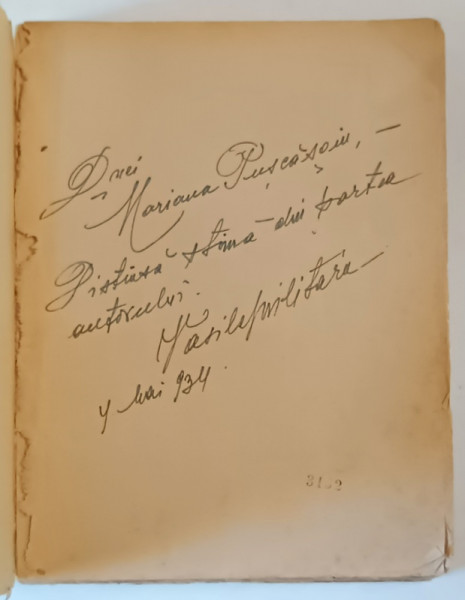 Dnei
Mariana Pușcășoiu, —
Distinsă stimă din partea
autorului.
Vasile Militaru —
4 Mai 934.